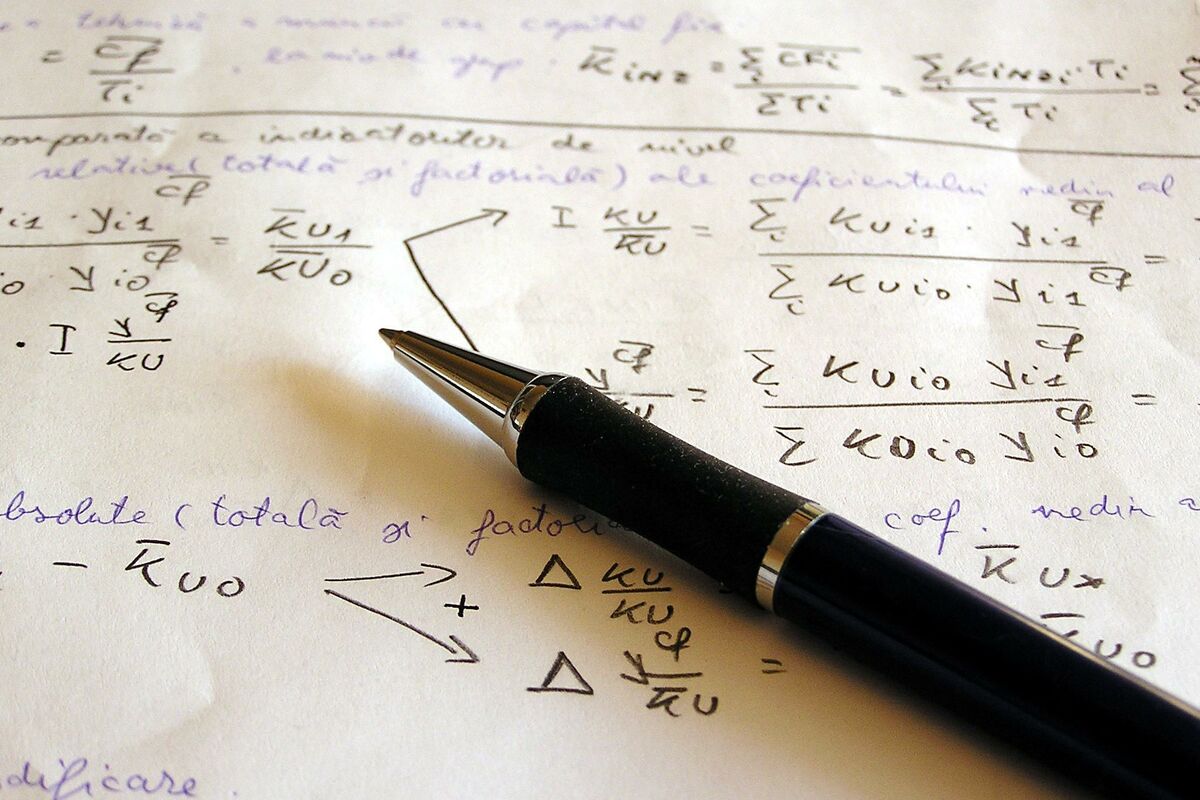 tehnică a muncii cu capital fix
= \frac{\overline{cf}}{\overline{T}_i} . \overline{K}_{inz} = \frac{\sum_i \overline{CF}_i}{\sum T_i} = \frac{\sum_i K_{inzi} \cdot T_i}{\sum_i T_i} = \sum
omparată a indicatorilor de nivel
relative (totală și factorială) ale coeficientului mediu al
i1 · y_{i1}^{\overline{cf}} / o y_{io}^{\overline{cf}} = \frac{\overline{K}_{U1}}{\overline{K}_{U0}} I \frac{KU}{\overline{KU}} = \frac{\sum_i KU_{i1} \cdot y_{i1}^{\overline{cf}}}{\sum_i KU_{io} \cdot y_{i1}^{\overline{cf}}} =
· I \frac{y^{\overline{cf}}}{KU} \frac{y^{\overline{cf}}}{KU} = \frac{\sum_i KU_{io} y_{i1}^{\overline{cf}}}{\sum KU_{io} y_{io}^{cf}} =
bsolute (totală și factori coef. mediu a
− \overline{K}_{U0} Δ \frac{KU}{KU} \overline{K}_{U*}
+ \overline{K}_{U0}
Δ \frac{y^{cf}}{\overline{K}U} =
dificare .